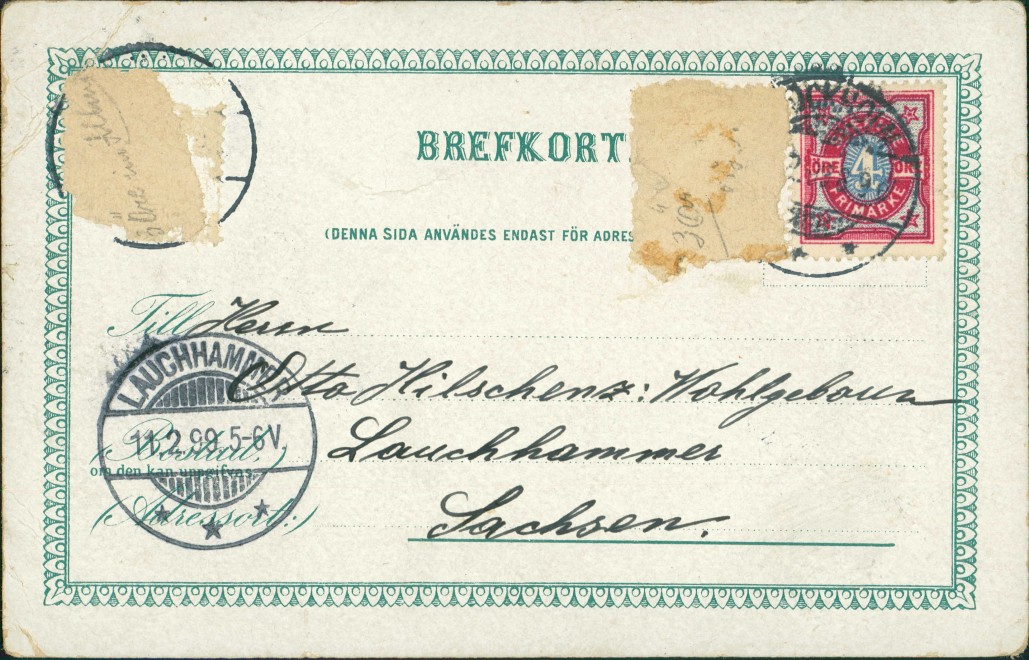 BREFKORT
(DENNA SIDA ANVÄNDES ENDAST FÖR ADRES
SVERIGE
ÖRE 4 ÖRE
FRIMÄRKE
Till Herrn
Otto Hilschenz: Wohlgeborn
LAUCHHAMMER
11.2.99.5-6V.
(Bostad)
om den kan uppgifvas.
Lauchhammer
(Adressort:)
Sachsen.